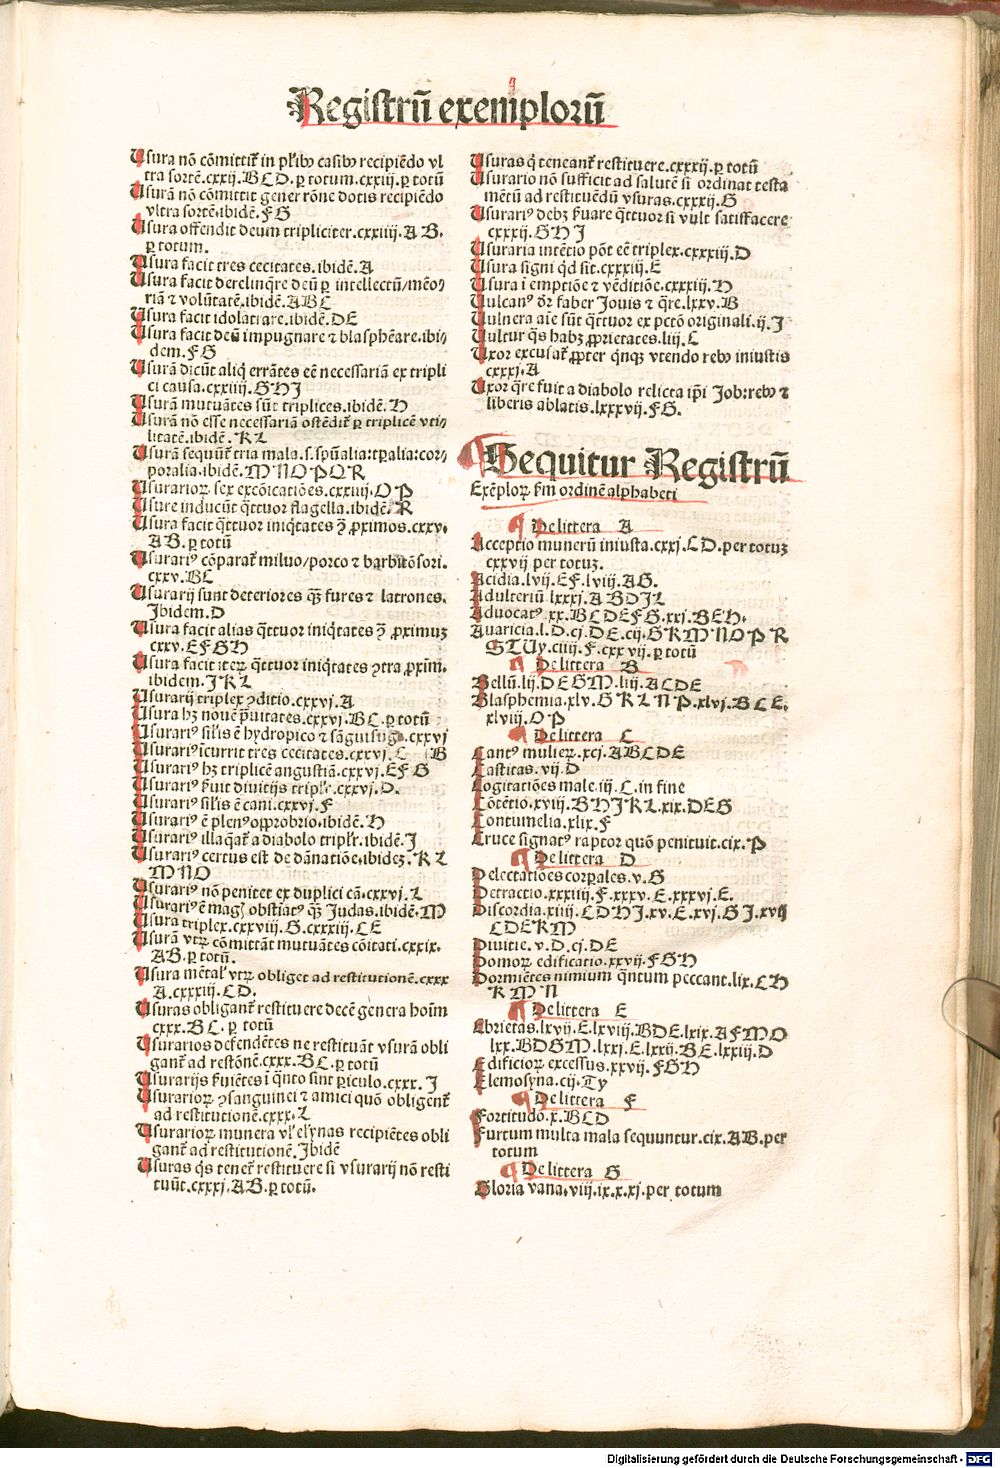 Registrū exemplorū
Usura nō cōmittit̃ in pl̃ibꝯ casibꝯ recipiēdo vl
tra sortē.cxxij.B C D.ꝑ totum.cxxiij.ꝑ totū
Usurā nō cōmittit gener rōne dotis recipiēdo
vltra sortē.ibidē.F G
Usura offendit deum tripliciter.cxxiiij.A B.
ꝑ totum.
Usura facit tres cecitates.ibidē.A
Usura facit derelinq̄re deū ꝑ intellectū/mēo/
riā ⁊ volūtatē.ibidē.A B C
Usura facit idolatrare.ibidē.D E
Usura facit deū impugnare ⁊ blasphēare.ibi/
dem.F G
Usurā dicūt aliq̇ errātes eē necessariā ex tripli
ci causa.cxxiiij.G H I
Usurā mutuātes sūt triplices.ibidē.H
Usurā nō esse necessariā ostēdit̃ ꝑ triplicē vti/
litatē.ibidē.K L
Usurā sequūt̃ tria mala.s.spūalia:tꝑalia:cor/
poralia.ibidē.M N O P Q R
Usurarioꝝ sex excōicatiōes.cxxiiij.O P
Usure inducūt q̄ttuor flagella.ibidē.R
Usura facit q̄ttuor iniq̇tates ꝯ̄ ꝓximos.cxxv.
A B.ꝑ totū
Usurariꝰ cōparat̃ miluo/porco ⁊ barbitōsori.
cxxv.B C
Usurarij sunt deteriores q̄ꝫ fures ⁊ latrones.
Ibidem.D
Usura facit alias q̄ttuor iniq̇tates ꝯ̄ ꝓximuꝫ
cxxv.E F G H
Usura facit iteꝝ q̄ttuor iniq̇tates ꝯtra ꝓxim̄.
ibidem.I K L
Usurarij triplex ꝯditio.cxxvj.A
Usura hꝫ nouē p̄uitates.cxxvj.B C.ꝑ totū
Usurariꝰ sil̃is ē hydropico ⁊ sāguisuge.cxxvj
Usurariꝰ īcurrit tres cecitates.cxxvj.C (B
Usurariꝰ hꝫ triplicē angustiā.cxxvj.E F G
Usurariꝰ ẜuit diuitijs tripl̃r.cxxvj.D.
Usurariꝰ sil̃is ē cani.cxxvj.F
Usurariꝰ ē plenꝰ opprobrio.ibidē.H
Usurariꝰ illaq̄at̃ a diabolo tripl̃r.ibidē.I
Usurariꝰ certus est de dānatiōe.ibideꝫ.K L
M N O
Usurariꝰ nō penitet ex duplici cā.cxxvj.L
Usurariꝰ ē magꝭ obstiatꝰ q̄ꝫ Judas.ibidē.M
Usura triplex.cxxviij.G.cxxxiij.C E
Usurā vtꝝ cōmittāt mutuātes cōitati.cxxix.
A B.ꝑ totū.
Usura mētal' vtꝝ obliget ad restitutionē.cxxx
A.cxxxiij.C D.
Usuras obligant̃ restituere decē genera hoīm
cxxx.B C.ꝑ totū
Usurarios defendētes ne restituāt vsurā obli
gant̃ ad restōnē.cxxx.B C.ꝑ totū
Usurarijs ẜuiētes ī q̇nto sint ꝑiculo.cxxx.I
Usurarioꝝ ꝯsanguinei ⁊ amici quō obligent̃
ad restitutionē.cxxx.L
Usurarioꝝ munera vl' elyn̄as recipiētes obli
gant̃ ad restitutionē.Ibidē
Usuras q̇s tenet̃ restituere si vsurarij nō resti
tuūt.cxxxj.A B.ꝑ totū.
Usuras q̇ teneant̃ restituere.cxxxij.ꝑ totū
Usurario nō sufficit ad salutē si ordinat testa
mētū ad restituēdū vsuras.cxxxij.G
Usurariꝰ debꝫ ẜuare q̄ttuor si vult satisfacere
cxxxij.G H I
Usuraria intētio pōt eē triplex.cxxxiij.D
Usura signi q̇d sit.cxxxiij.E
Usura ī emptiōe ⁊ vēditiōe.cxxxiij.H
Vulcanꝰ dr̄ faber Jouis ⁊ q̄re.lxxv.B
Vulnera aīe sūt q̄ttuor ex pctō originali.ij.I
Vultur q̄s habꝫ ꝓprietates.liij.C
Uxor excusat̃ ꝓpter q̇nqꝫ vtendo rebꝯ iniustis
cxxxj.A
Uxor q̄re fuit a diabolo relicta ip̄i Job:rebꝯ ⁊
liberis ablatis.lxxxvij.F G.
Sequitur Registrū
Exēploꝝ ẜm ordinē alphabeti
¶ De littera A
Acceptio munerū iniusta.cxxj.C D.per totuꝫ
cxxvij per totuꝫ.
Acidia.lvij.E F.lviij.A G.
Adulteriū.lxxxj.A B D I L
Aduocatꝰ.xx.B C D E F G.xxj.B E H.
Auaricia.l.D.cj.D E.cij.G K M N O P R
S T U y.ciiij.F.cxxvij.ꝑ totū
¶ De littera B
Bellū.lij.D E G M.liij.A C D E
Blasphemia.xlv.G K L N P.xlvj.B C E.
xlviij.O P
¶ De littera C
Cantꝰ mulieꝝ.xcj.A B C D E
Castitas.vij.D
Cogitatiōes male.iij.C.in fine
Cōtētio.xviij.B H I K L.xix.D E G
Contumelia.xlix.F
Cruce signatꝰ raptor quō penituit.cix.P
¶ De littera D
Delectatiōes corꝑales.v.G
Detractio.xxxiiij.F.xxxv.E.xxxvj.E.
Discordia.xiiij.C D H I.xv.E.xvj.G I.xvij
L D E K M
Diuitie.v.D.cj.D E
Domoꝝ edificatio.xxvij.F G H
Dormiētes nimium q̄ntum peccant.lix.C H
K M N
¶ De littera E
Ebrietas.lxvij.E.lxviij.B D E.lxix.A F M O
lxx.B D G M.lxxj.E.lxxij.B E.lxxiij.D
Edificioꝝ excessus.xxvij.F G H
Elemosyna.cij.T y
¶ De littera F
Fortitudo.x.B C D
Furtum multa mala sequuntur.cix.A B.per
totum
¶ De littera G
Gloria vana.viij.ix.x.xj.per totum
Digitalisierung gefördert durch die Deutsche Forschungsgemeinschaft - DFG